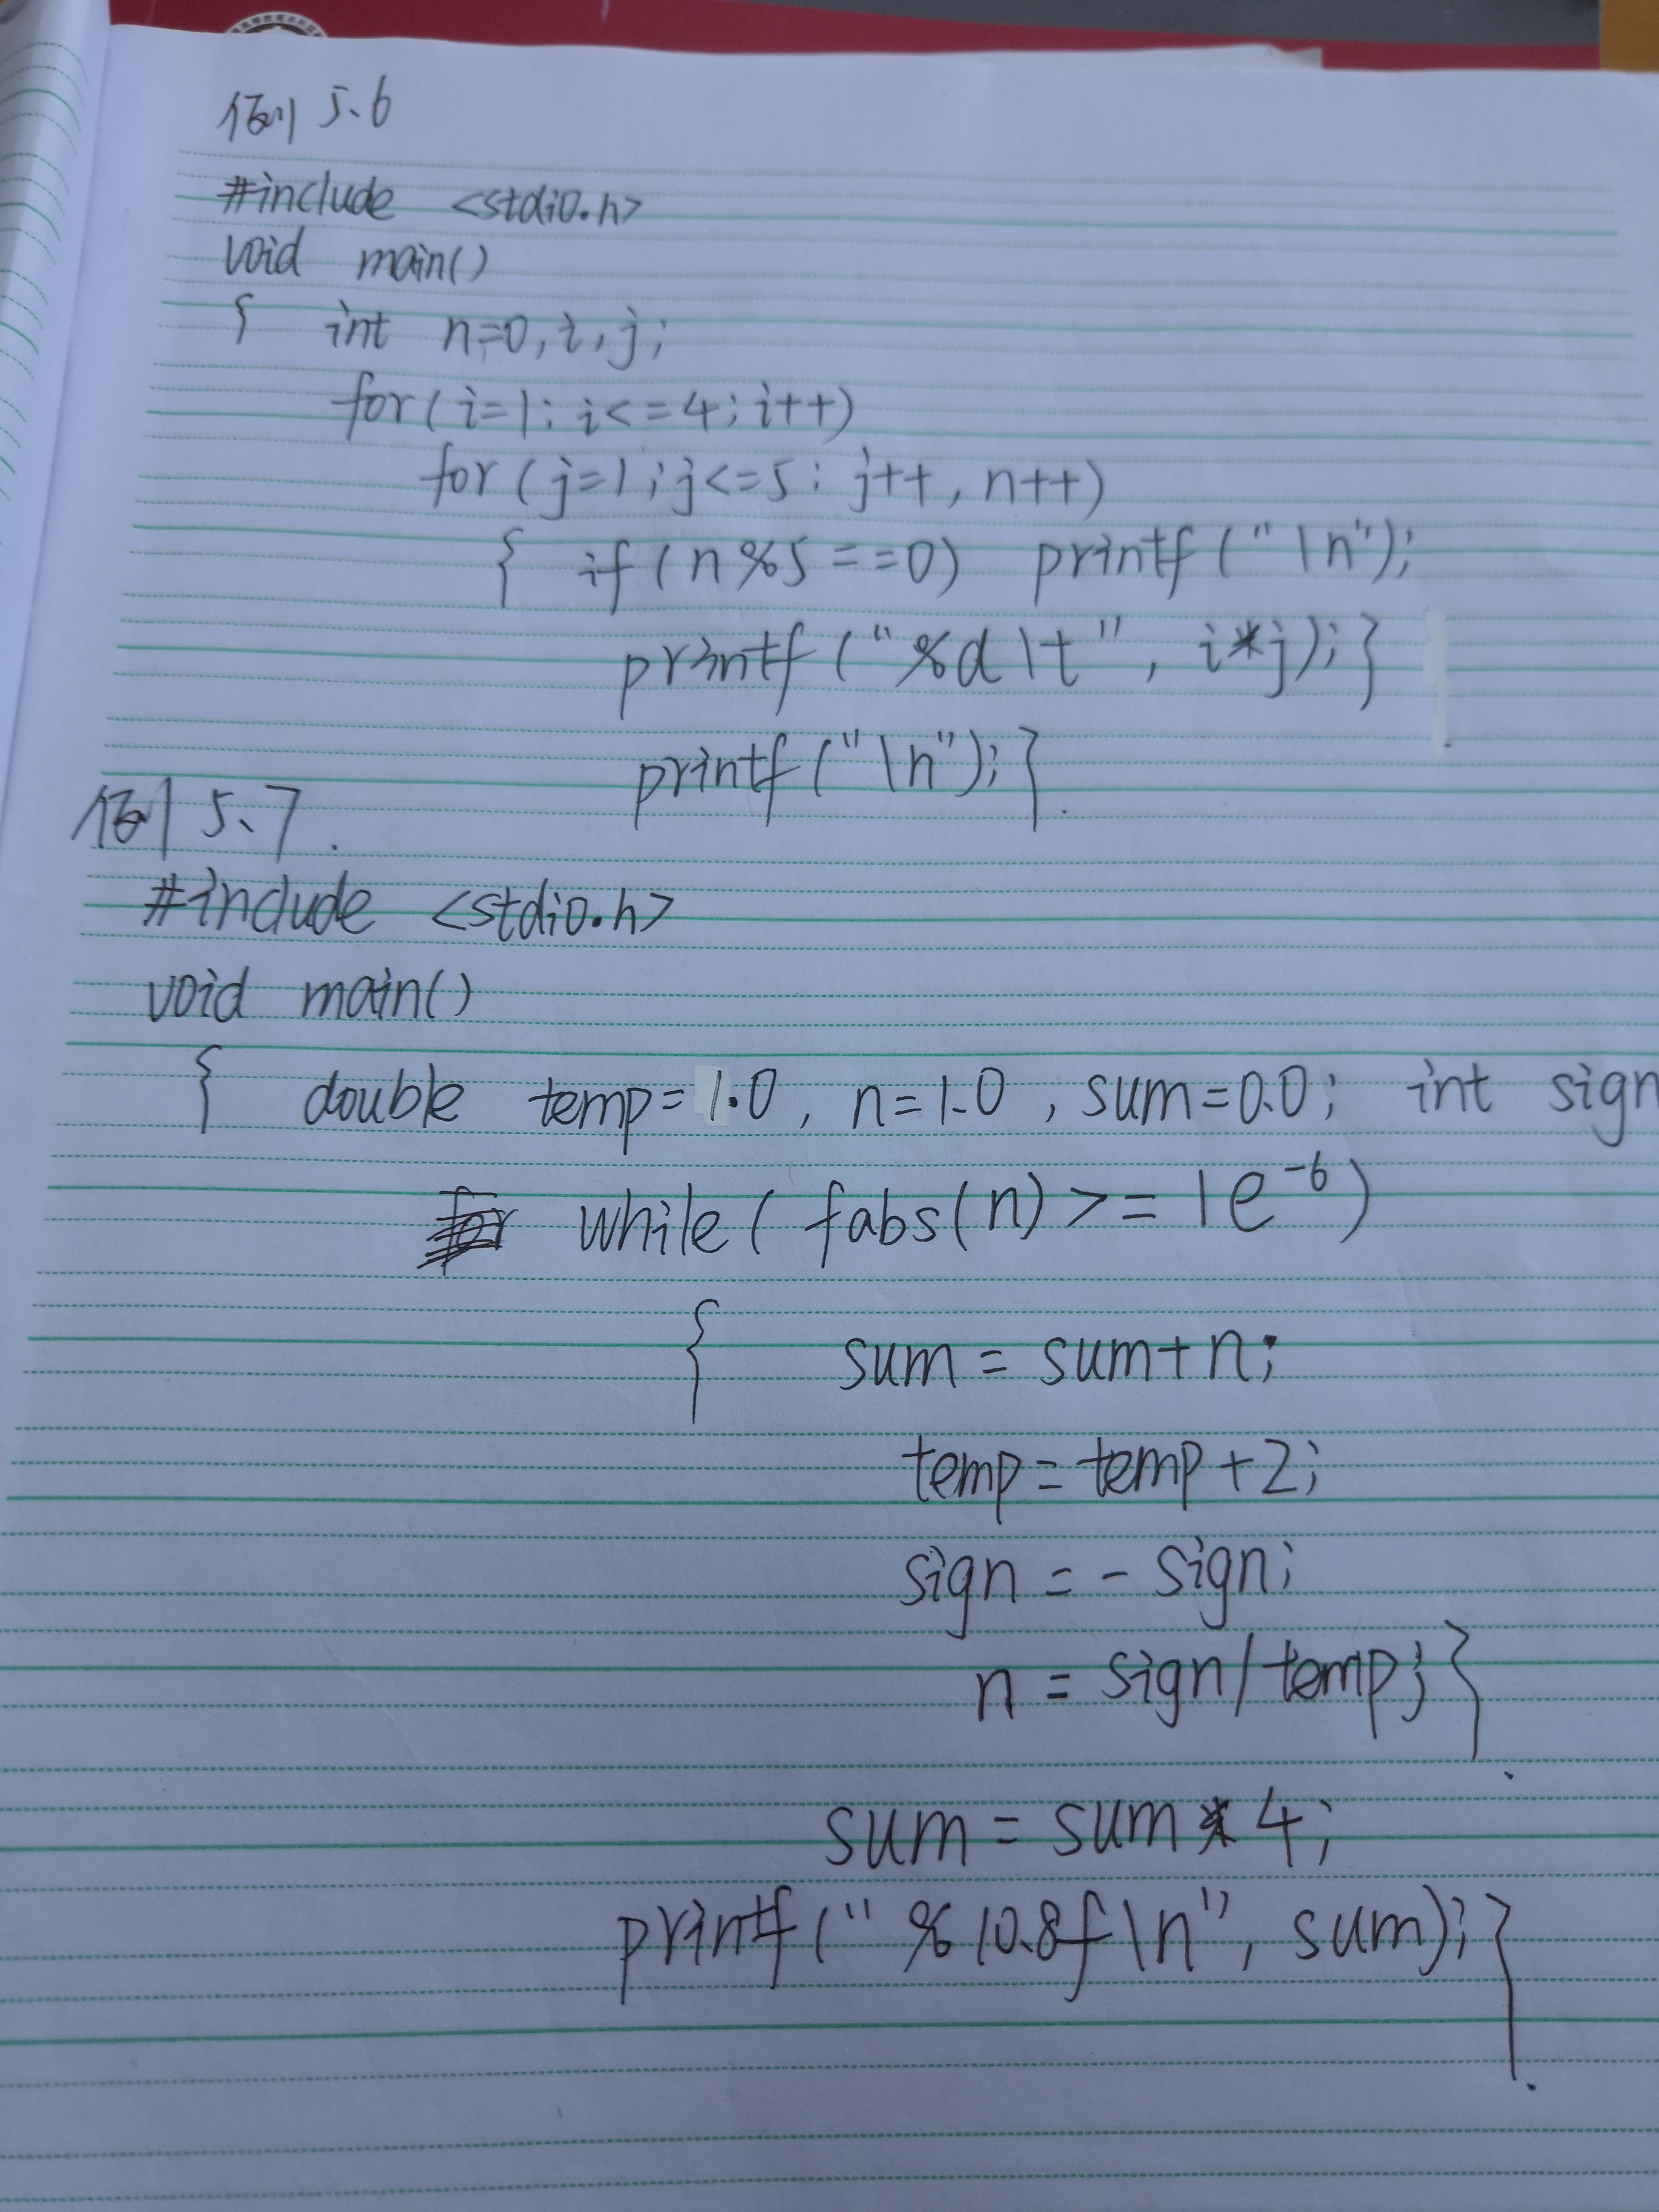 例 5.6
#include <stdio.h>
void main()
{ int n=0,i,j;
for(i=1;i<=4;i++)
for(j=1;j<=5;j++,n++)
{ if(n%5==0) printf("\n");
printf("%d\t", i*j);}
printf("\n");}
例 5.7
#include <stdio.h>
void main()
{ double temp=1.0, n=1.0, sum=0.0; int sign
while(fabs(n)>=1e⁻⁶)
{ sum=sum+n;
temp=temp+2;
sign=-sign;
n=sign/temp;}
sum=sum*4;
printf("%10.8f\n", sum);}